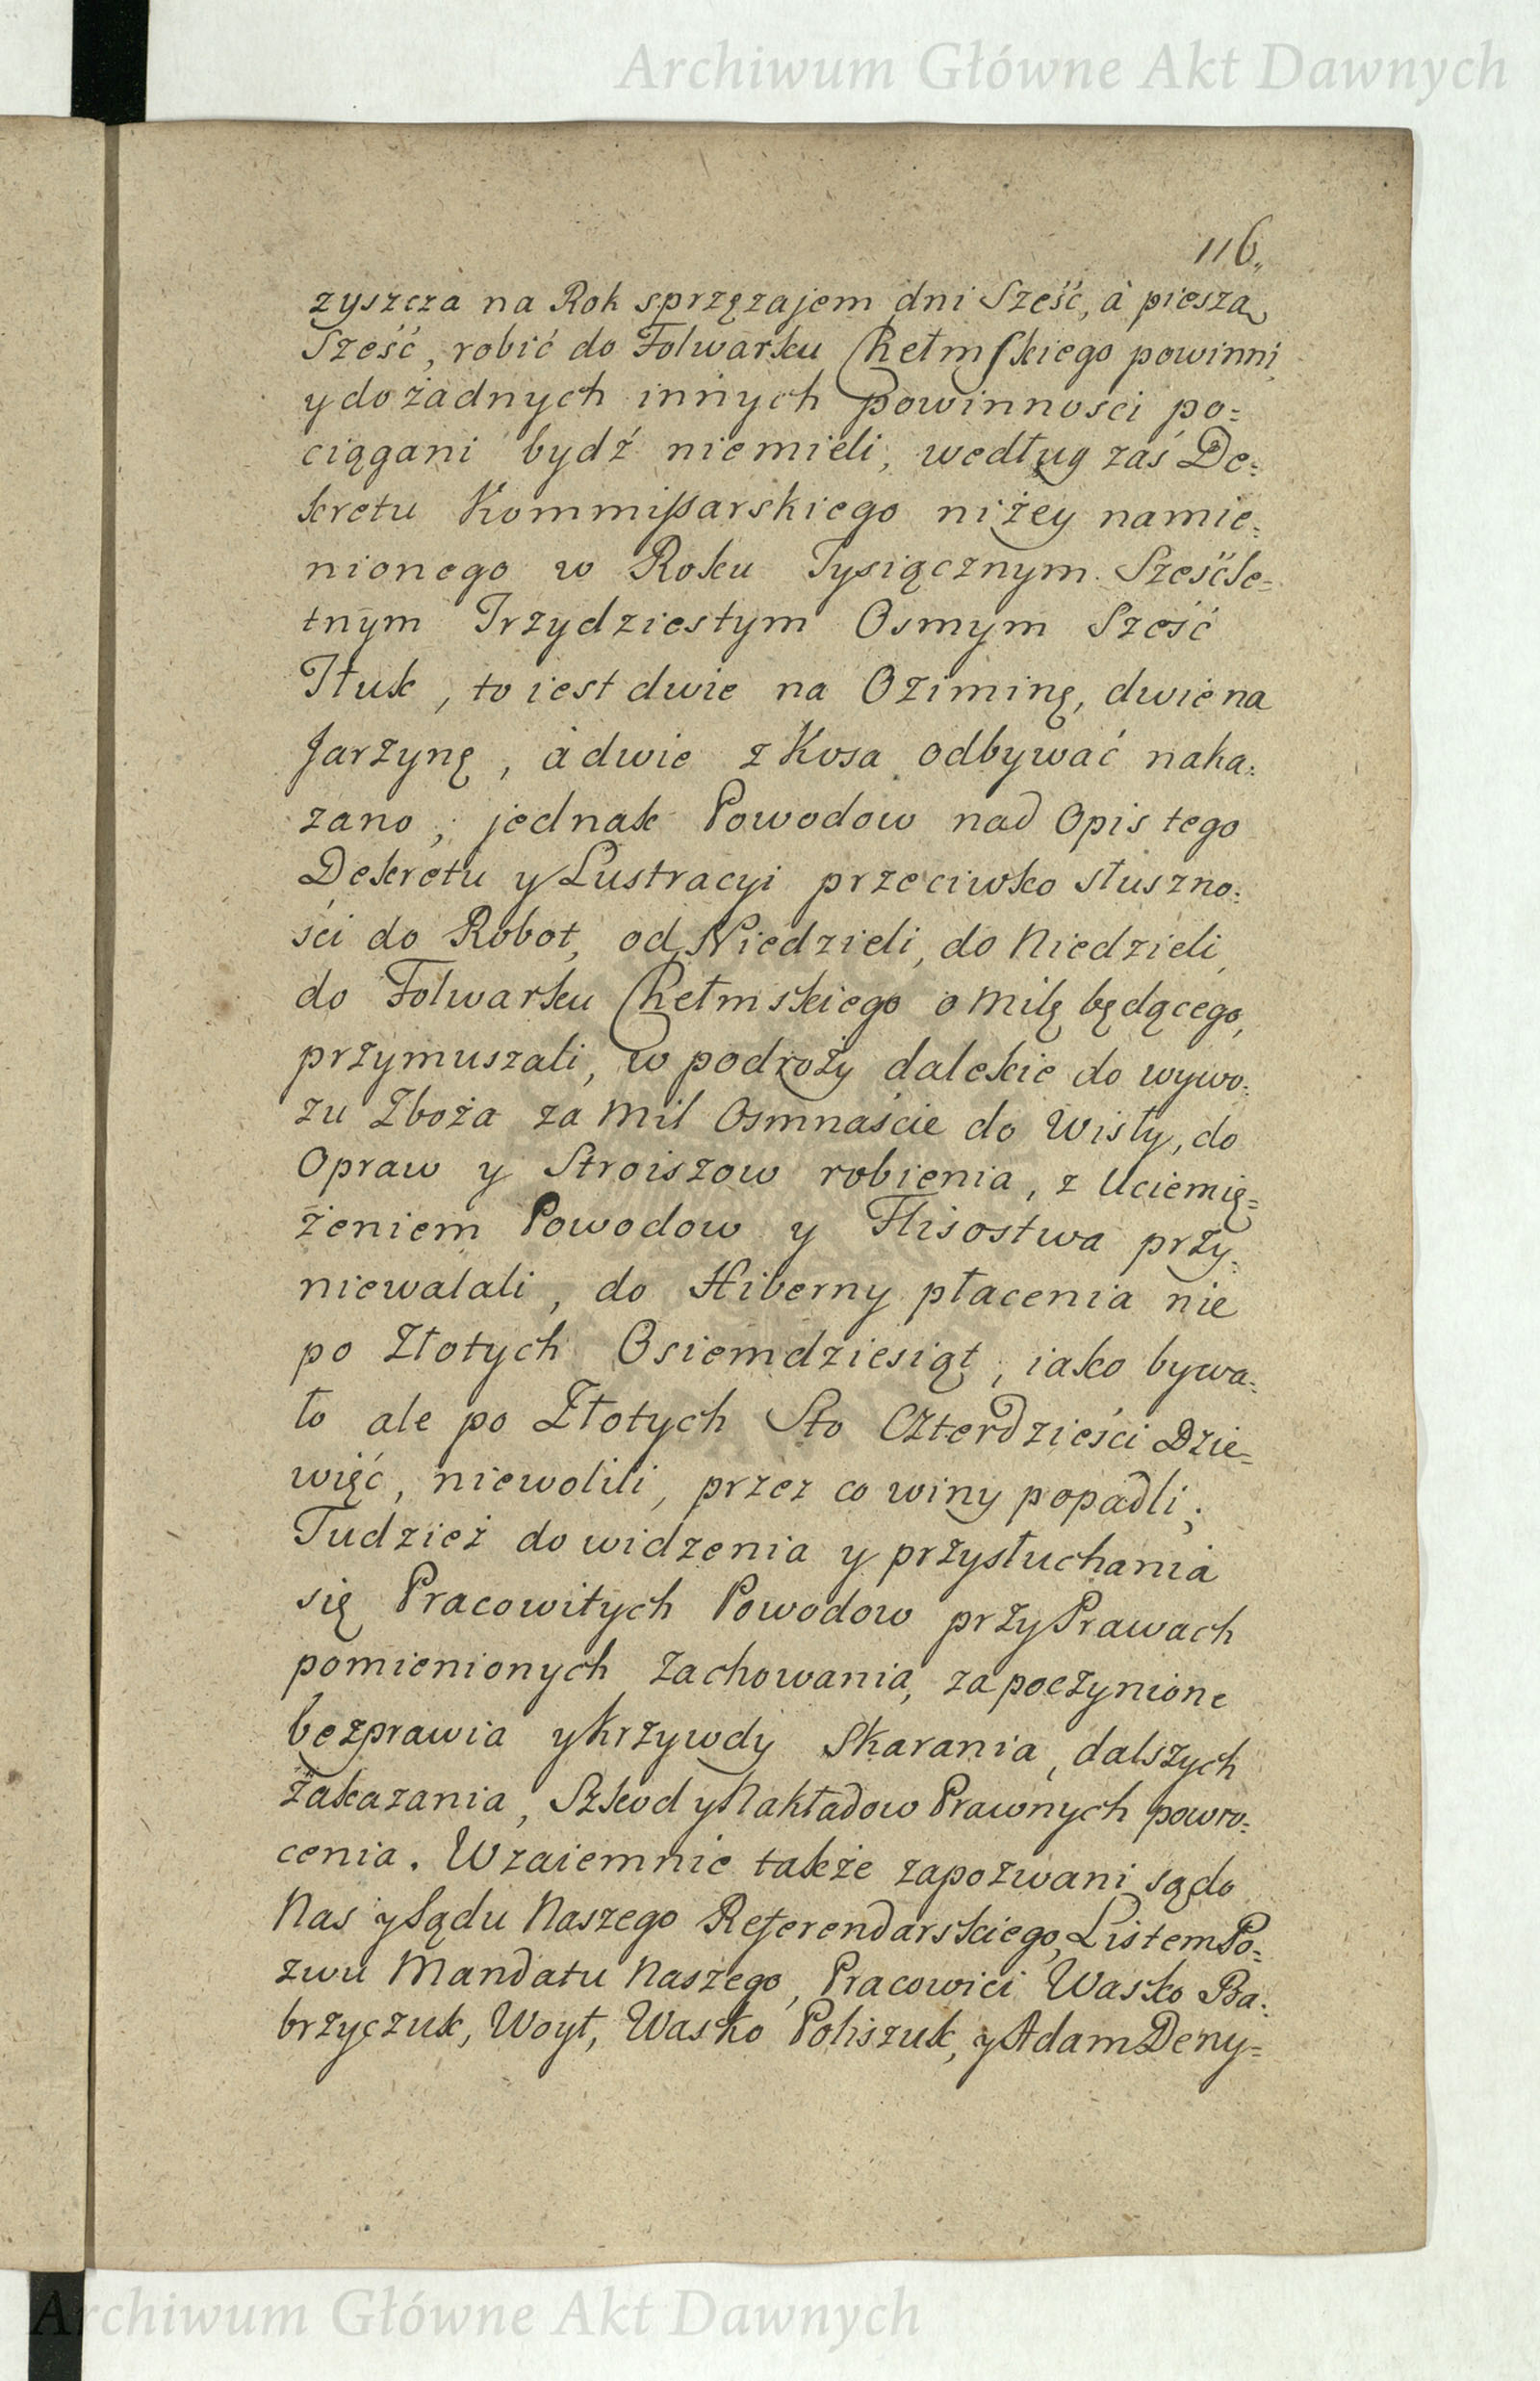 Archiwum Główne Akt Dawnych
116.
zyszcza na Rok sprzężajem dni Sześć, à pieszą
Sześć, robić do Folwarku Chełmskiego powinni
y do żadnych innych powinności po=
ciągani bydź niemieli, według zaś De=
kretu Kommissarskiego niżey namie=
nionego w Roku Tysiącznym Sześćse=
tnym Trzydziestym Osmym Sześć
Tłuk, to iest dwie na Oziminę, dwie na
Jarzynę, à dwie z Kosa odbywać naka=
zano, jednak Powodow nad Opis tego
Dekretu y Lustracyi przeciwko słuszno=
ści do Robot, od Niedzieli, do Niedzieli,
do Folwarku Chełmskiego o Milę będącego,
przymuszali, w podroży dalekie do wywo=
zu Zboża za Mil Osmnaście do Wisły, do
Opraw y Stroiszow robienia, z Uciemię=
żeniem Powodow y Flisostwa przy=
niewalali, do Hiberny płacenia nie
po Złotych Osiemdziesiąt, iako bywa=
ło ale po Złotych Sto Czterdzieści Dzie=
więć, niewolili, przez co winy popadli;
Tudzież do widzenia y przysłuchania
się Pracowitych Powodow przy Prawach
pomienionych zachowania, za poczynione
bezprawia y krzywdy Skarania, dalszych
zakazania, Szkod y Nakładow Prawnych powro=
cenia. Wzaiemnie także zapozwani są do
Nas y Sądu Naszego Referendarskiego, Listem Po=
zwu Mandatu Naszego, Pracowici Wasko Ba=
brzyczuk, Woyt, Wasko Poliszuk, y Adam Deny=
Archiwum Główne Akt Dawnych